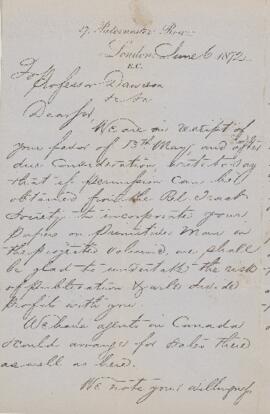 17, Paternoster Row
London, June 6 1872
E.C.
Professor Dawson
Dear Sir
We are in receipt of
your favor of 13th May, and after
due consideration, write to say
that if permission can be
obtained from the Rel. Tract
Society to incorporate your
papers on Primitive Man in
the projected volume, we shall
be glad to undertake the risk
of publication & divide
profits with you.
We have agents in Canada
& could arrange for sales there
as well as here.
We note your willingness